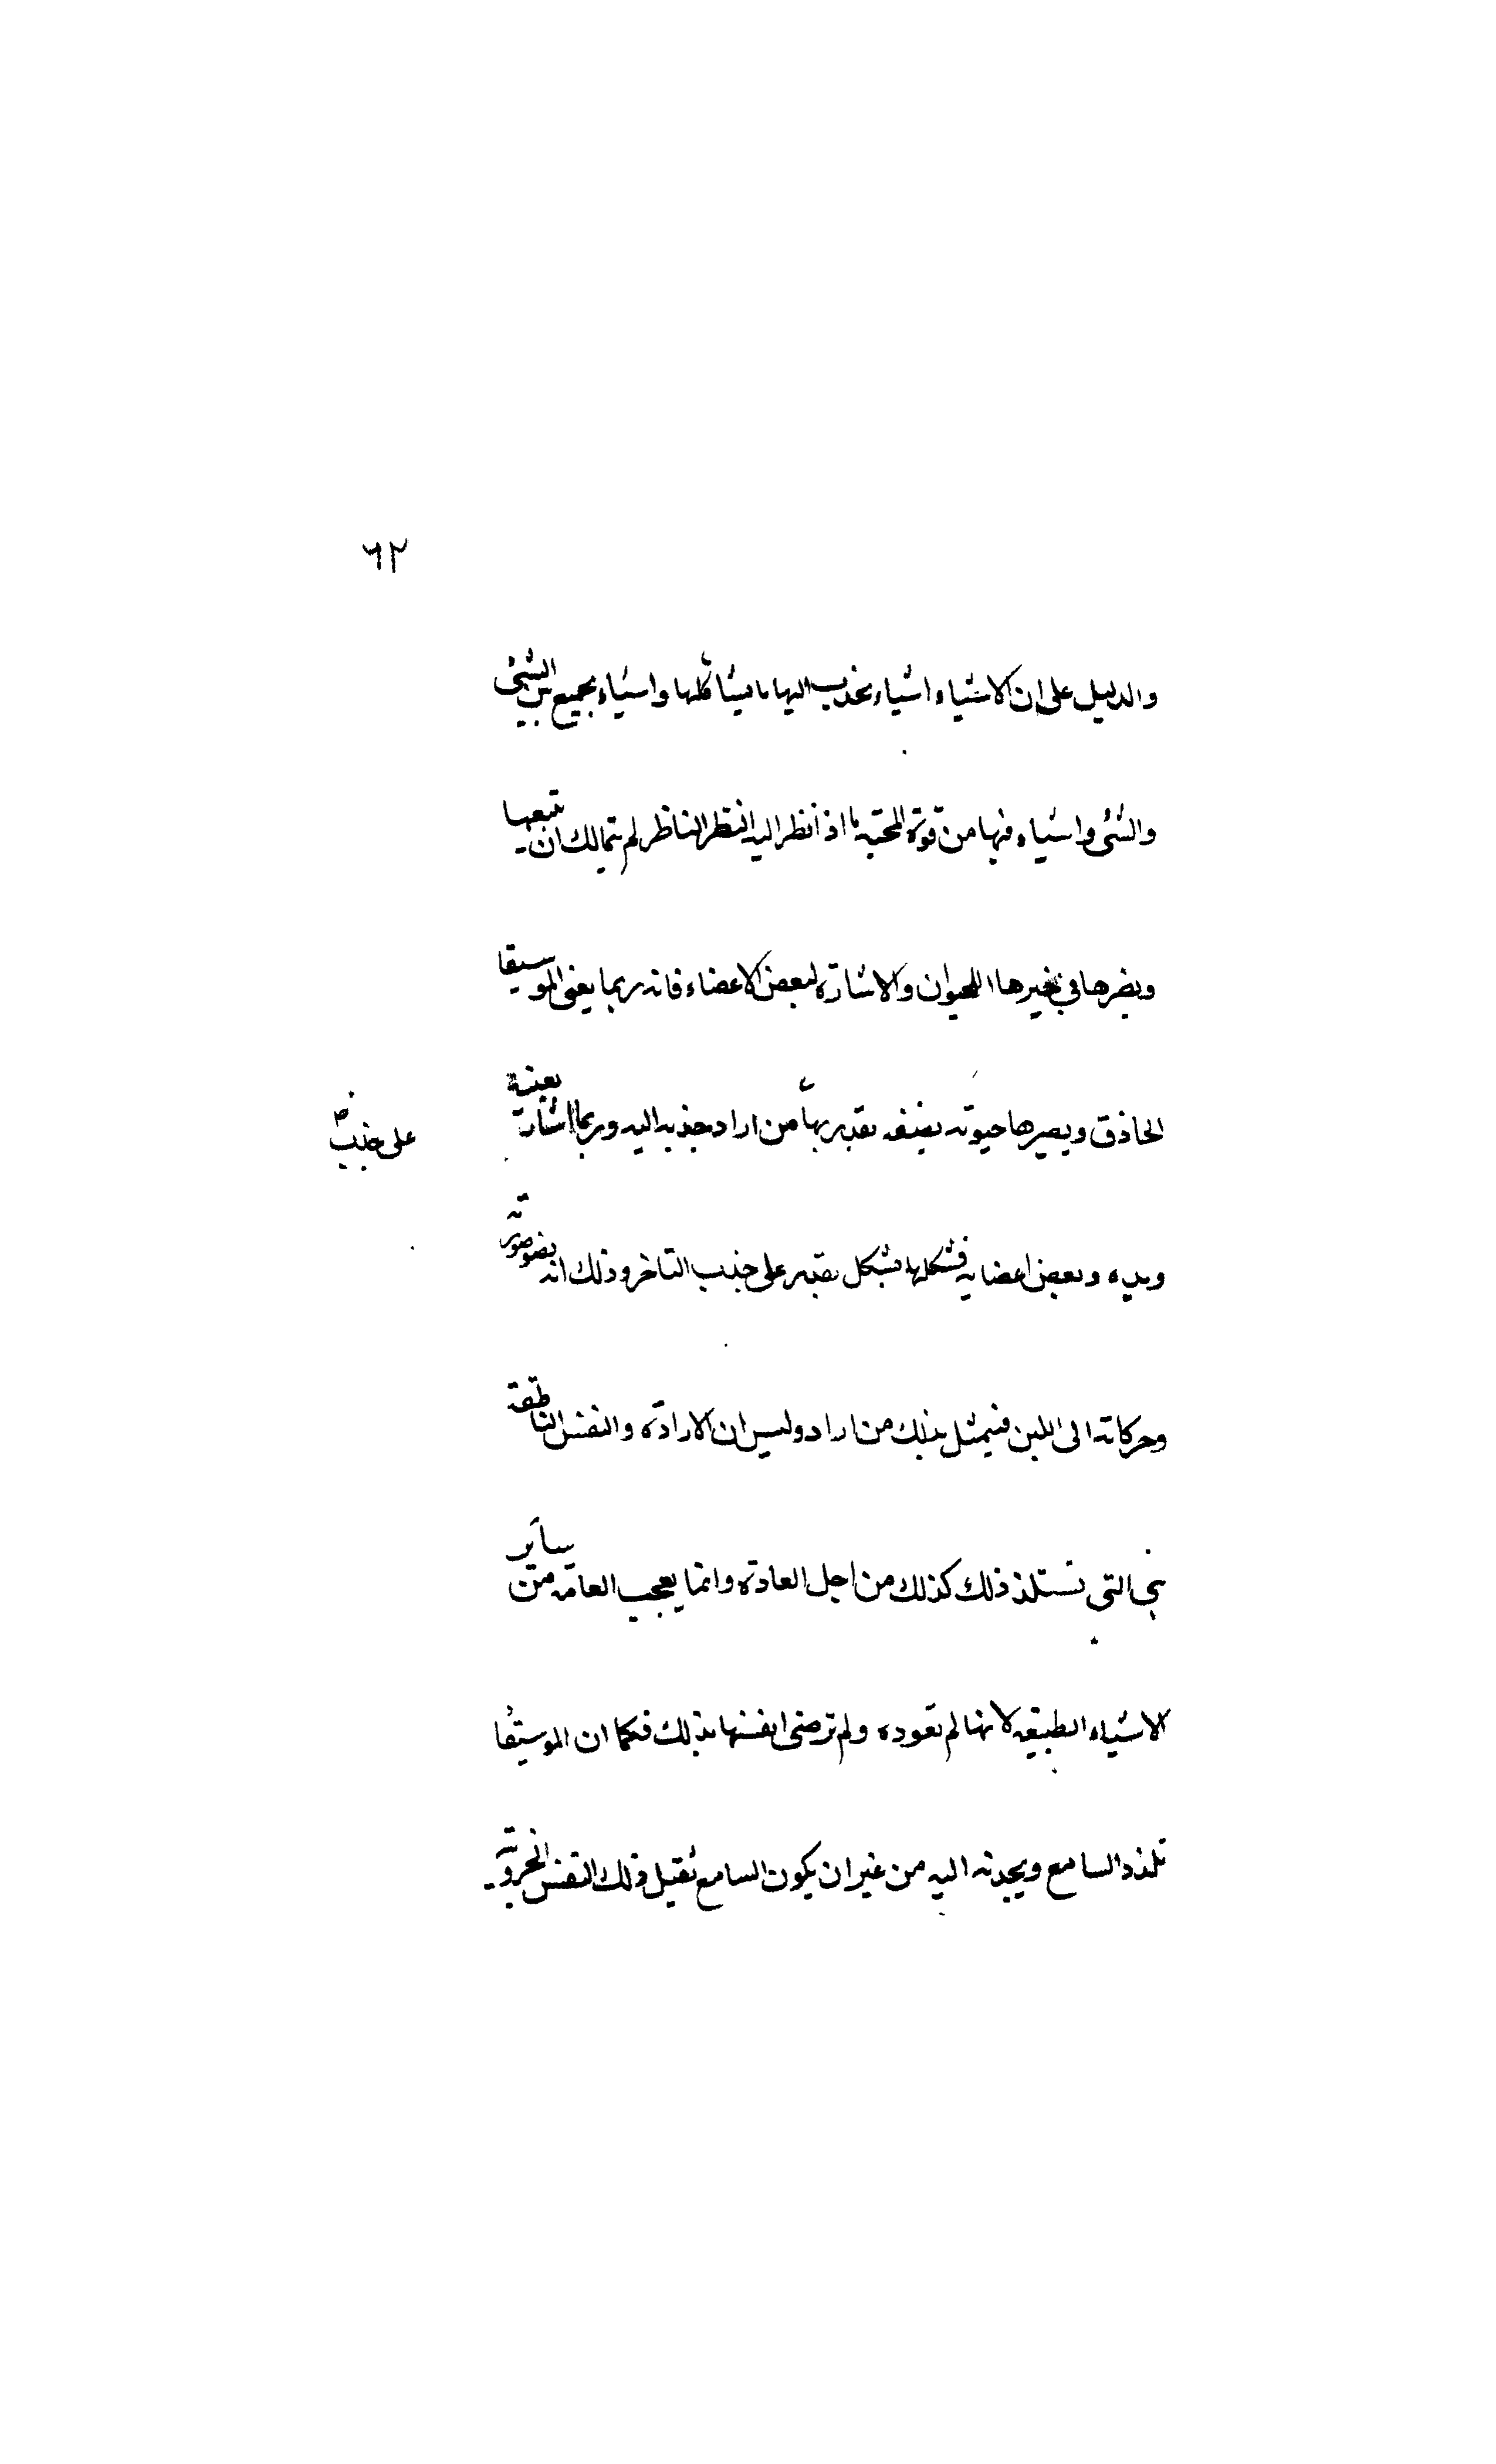 ٦٢
والدليل على ان الاشياء اشياء يجذب اليها ما يشاكلها واشياء يجميع بين الشئ
والشئ واشياء فيها من قوة المحبة ما اذا نظر اليه النظر الناظر لم يتمالك ان يتبعها
ويضرها في غيرها الحيوان والاشارة لبعض الاعضاء فانه ربما يغنى الموسيقا
الحاذق ويصيرها حيوته بصنفه يقدر بها من اراد جذبه اليه وربما اشارة بعينة
على جذب
ويده وبعض اعضايه فشكلها بشكل يقدر على جذب الناظر وذلك انه صورته
وحركاته الى اللين فيمثل بذلك من اراد وليس ان الارادة والنفس الناطقة
هى التى تستلذ ذلك كذلك من اجل العادة وانما يعجب العامة من سائر
الاشياء الطبيعه لانها لم تعوده ولم ترضى انفسها بذلك فكما ان الموسيقا
تلذذ السامع ويجذبه اليه من غير ان يكون السامع يقبل ذلك النفس